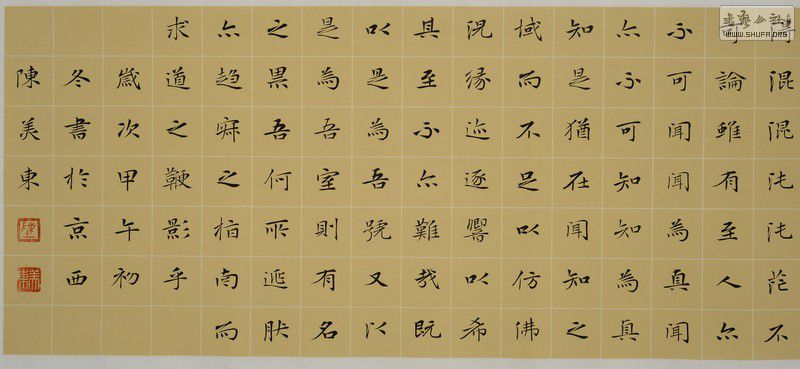 混混沌沌茫不
可論雖有至人亦
不可聞聞為真聞
亦不可知知為真
知是猶在聞知之
域而不足以仿佛
況緣迹逐響以希
其至不亦難哉既
以是為吾號又以
是為吾室則有名
之累吾何所逃肰
亦趨寂之指南而
求道之鞭影乎
歲次甲午初
冬書於京西
陳美東
WWW.SHUFA.ORG